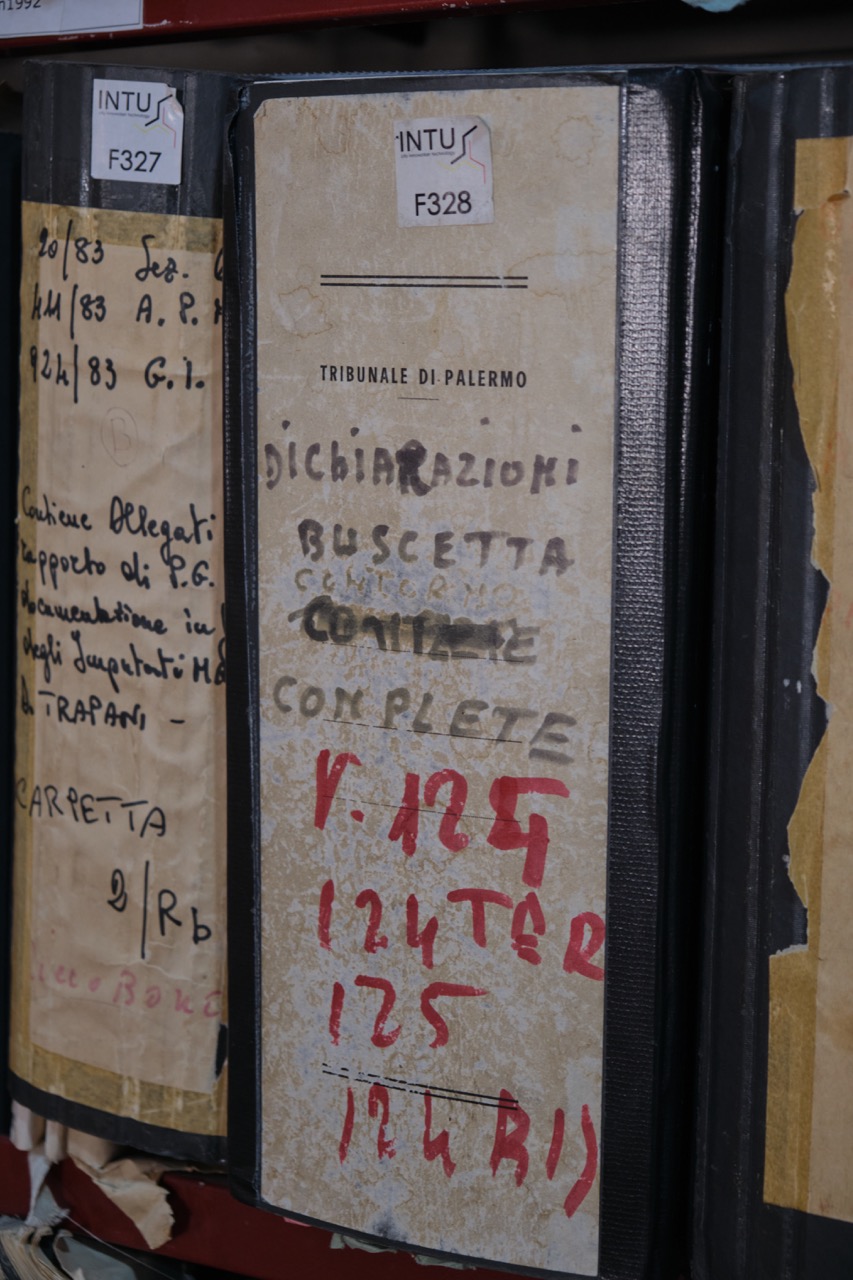 n1992
INTU
F327
20/83 Sez.
411/83 A. P.
924/83 G. I.
B
Contiene Allegati
rapporto di P.G.
documentazione in
degli Imputati
TRAPANI -
CARPETTA
2/Rb
BONO
INTU
F328
TRIBUNALE DI PALERMO
DICHIARAZIONI
BUSCETTA
CONTORNO
COMPLETE
V. 124
124 TER
125
124 BIS